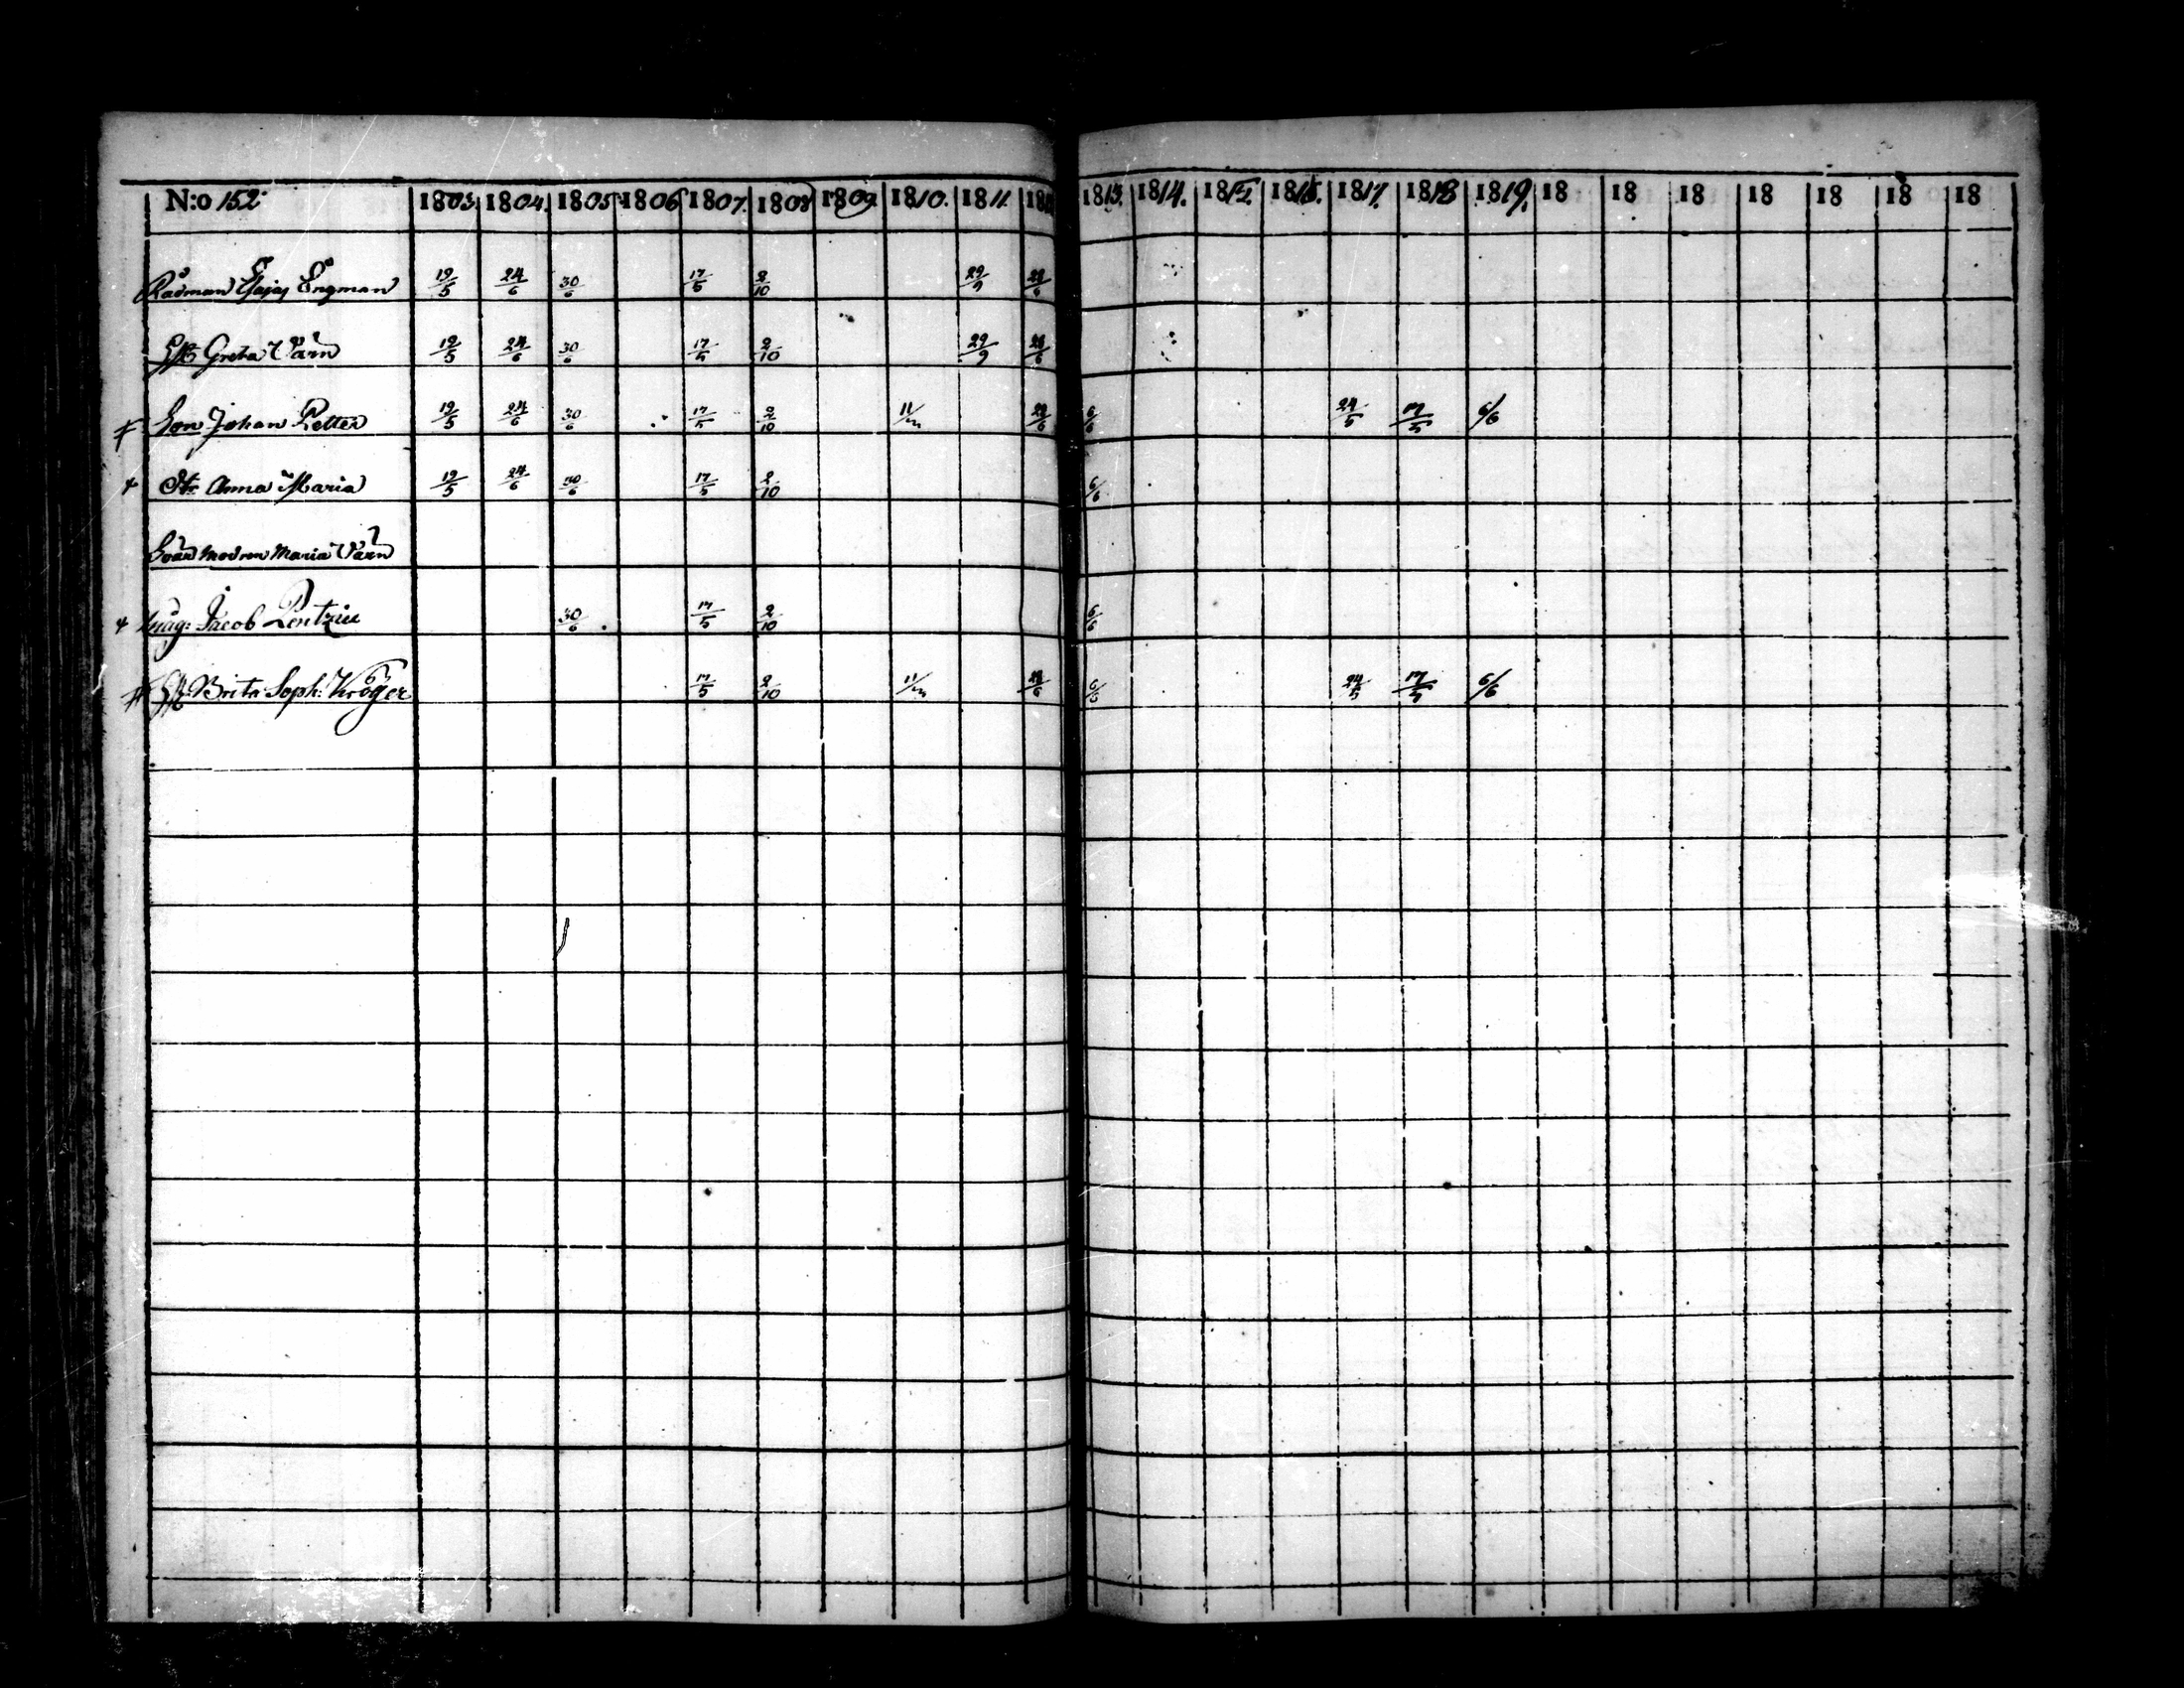 N:o 152 1803. 1804. 1805. 1806 1807. 1808 1809. 1810. 1811. 181 1813. 1814. 1815. 1816. 1817. 1818 1819. 18 18 18 18 18 18 18
Rådman Esajas Engman 19/5 24/6 30/6 17/5 2/10 29/9 28/6
Greta Värn 19/5 24/6 30/6 17/5 2/10 29/9 28/6
Son Johan Petter 19/5 24/6 30/6 17/5 2/10 11/ 28/6 6/6 24/5 17/5 6/6
Dtr Anna Maria 19/5 24/6 30/6 17/5 2/10 6/6
Svär modren Maria Värn
Mag: Jacob 30/6 17/5 2/10 6/6
Brita Soph: Kröger 17/5 2/10 11/ 28/6 6/6 24/5 17/5 6/6